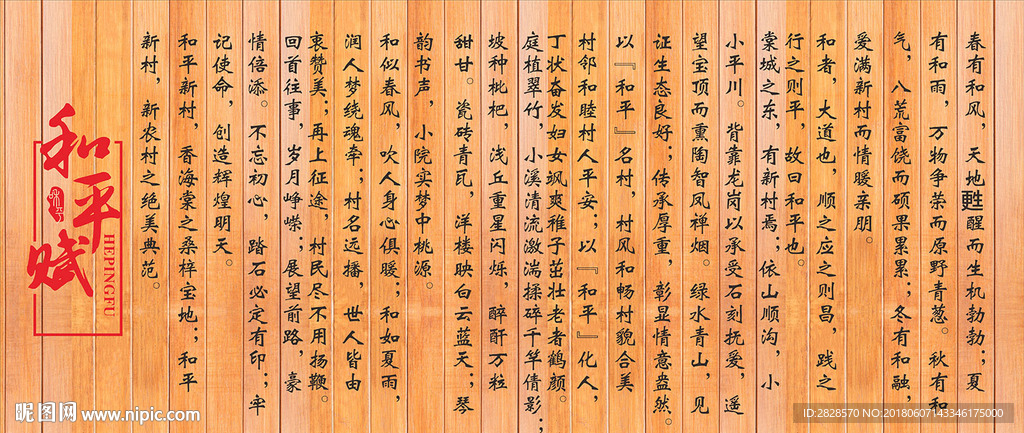 和平赋
HEPINGFU
春有和风，天地甦醒而生机勃勃；夏
有和雨，万物争荣而原野青葱。秋有和
气，八荒富饶而硕果累累；冬有和融，
爱满新村而情暖亲朋。
和者，大道也，顺之应之则昌，践之
行之则平，故曰和平也。
棠城之东，有新村焉；依山顺沟，小
小平川。背靠龙岗以承受石刻抚爱，遥
望宝顶而熏陶智凤禅烟。绿水青山，见
证生态良好；传承厚重，彰显情意盎然。
以『和平』名村，村风和畅村貌合美
村邻和睦村人平安；以『和平』化人，
丁状奋发妇女飒爽稚子茁壮老者鹤颜。
庭植翠竹，小溪清流激湍揉碎千竿倩影；
坡种枇杷，浅丘重星闪烁，醉酐万粒
甜甘。瓷砖青瓦，洋楼映白云蓝天；琴
韵书声，小院实梦中桃源。
和似春风，吹人身心俱暖；和如夏雨，
润人梦绕魂牵；村名远播，世人皆由
衷赞美；再上征途，村民尽不用扬鞭。
回首往事，岁月峥嵘；展望前路，豪
情倍添。不忘初心，踏石必定有印；牢
记使命，创造辉煌明天。
和平新村，香海棠之桑梓宝地；和平
新村，新农村之绝美典范。
昵图网 www.nipic.com
ID:2828570 NO:20180607143346175000